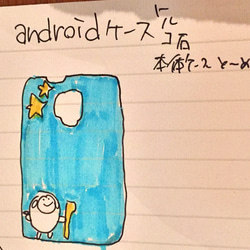 androidケース トルコ石
本体ケース と〜め